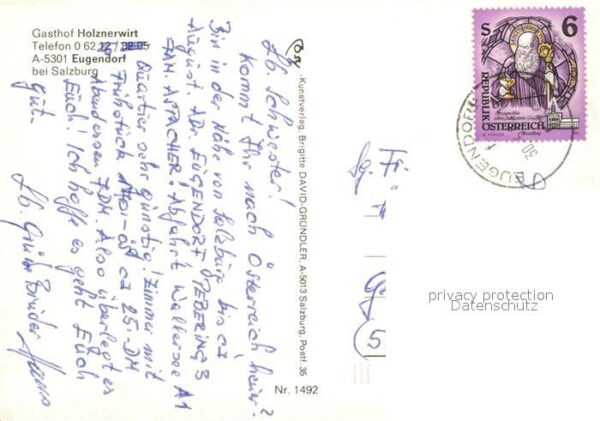 Gasthof Holznerwirt
Telefon 0 62 12 / 82 05
A-5301 Eugendorf
bei Salzburg
Lb. Schwester!
Kommt Ihr nach Österreich heuer?
Bin in der Nähe von Salzburg bis ca
August. AD. EUGENDORF 3
FAM. Abfahrt Wallersee A1
Quartier sehr günstig! Zimmer mit
Frühstück ca 25.-DM
Abendessen 7 DM. Also überlegt es
Euch! Ich hoffe es geht Euch
gut.
Lb. Grüße Bruder
Kunstverlag, Brigitte DAVID-GRÜNDLER, A-5013 Salzburg, Postf. 35
Nr. 1492
S 6
REPUBLIK
ÖSTERREICH
EUGENDORF
Sg. Fr.
(5
privacy protection
Datenschutz